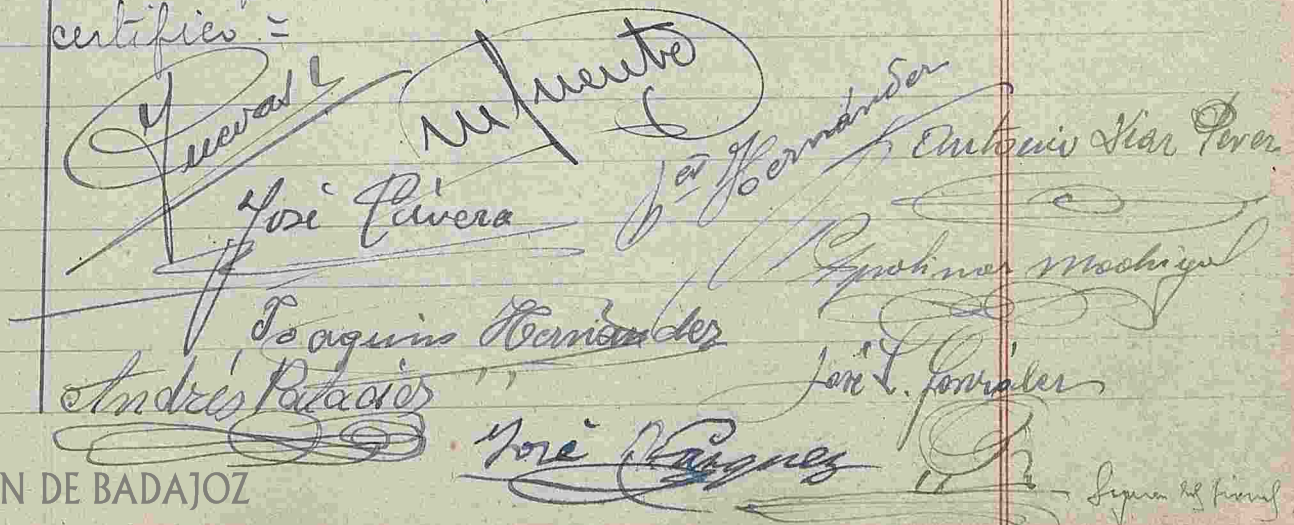 certifico =
Cuevas
M Puente
José Rivera
Fco Hernández
Antonio Diaz Perez
Apolinar Madrigal
Joaquin Hernández
Andrés Palacios
José L. González
José Vázquez
N DE BADAJOZ